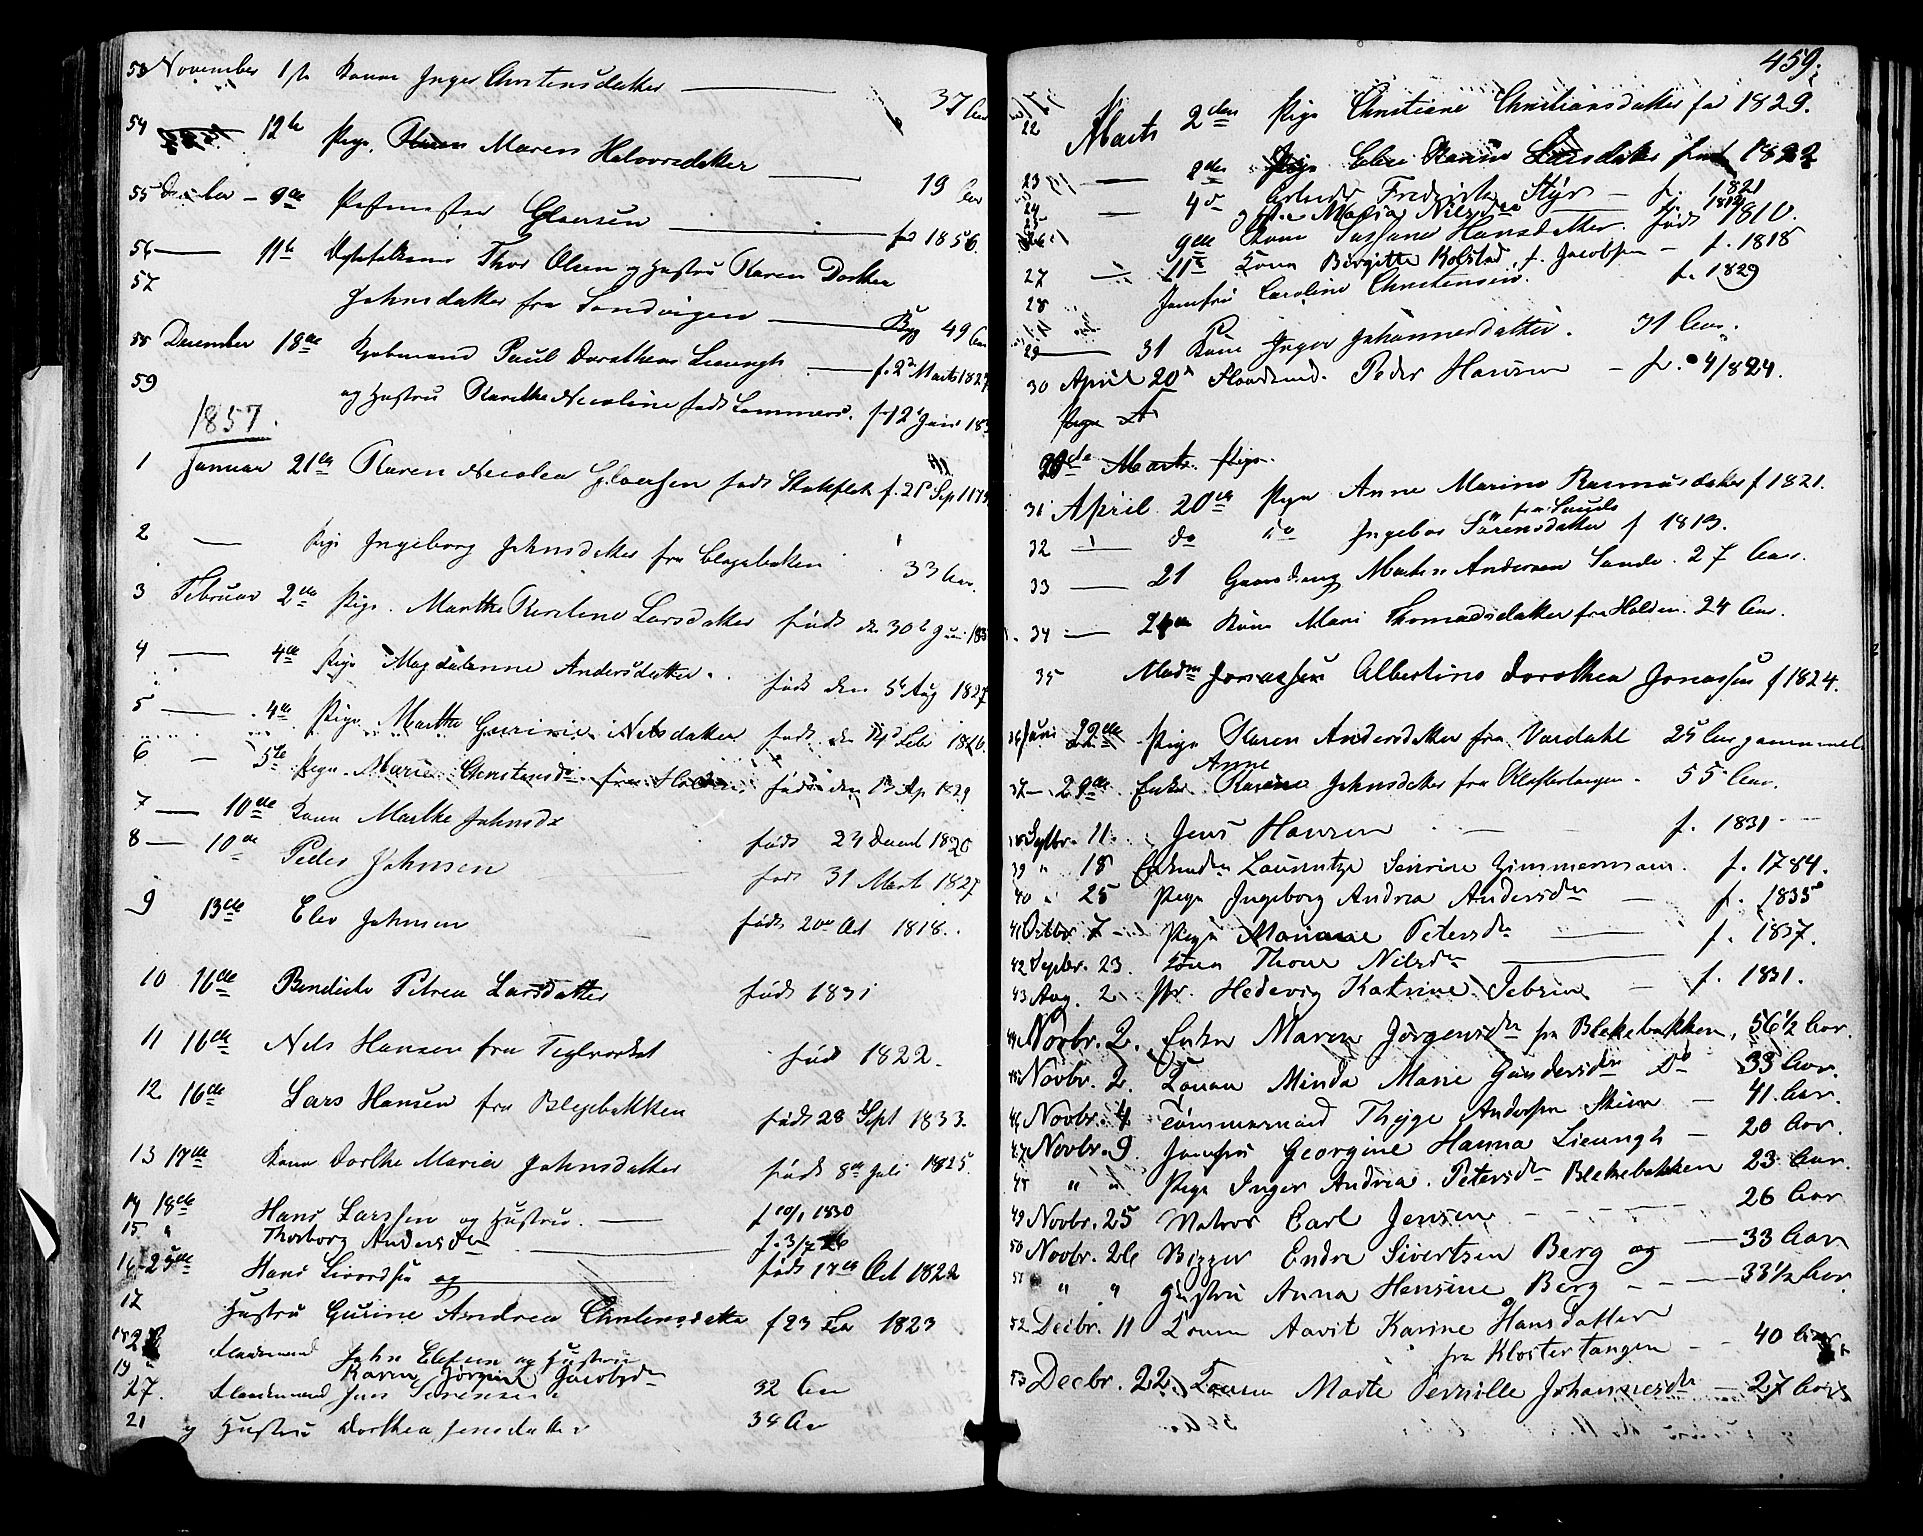 53 November 1ste Kone Inger Christensdatter — 37 Aar
54 12te Pige Maren Halvorsdatter — 19 Aar
55 December – 9de Postmester Claersen — fød 1856
56 — 11te Thor Olsen og Hustru Karen Dorthea
57 Johnsdatter fra Sandvigen — 49 Aar
58 December 18de Kjøbmand Paul Dorotheus Lieungh — f. 2d Marts 1827
59 og Hustru Karethe Nicoline født Lammers. f. 12 Juni 183
1857.
1 Januar 21de Karen Nicolea Claersen født f. 21d Sep
2 — Pige Ingeborg Johnsdatter fra Blegebakken 33 Aar.
3 Februar 2de Pige Marthe Kirstine Larsdatter født den 30te Juni 183
4 — 4de Pige Magdalenne Andersdatter. født den 5te Aug 1827
5 — 4de Pige Marthe Gurine Nilsdatter født den 14de Feb 1826
6 — 5te Pige Marie Christensdr fra Holden født den 13 Ap 1829
7 — 10de Kone Marthe Johnsdr født 24 Decemb 1820
8 — 10de Peder Johnsen født 31 Mart 1827
9 13de Elev Johnsen født 20de Oct 1818.
10 16de Bendicte Petrea Larsdatter født 1831
11 16de Nels Hansen fra Teglverket fød 1822.
12 16de Lars Hansen fra Blegebakken født 28 Sept 1833.
13 17de Kone Dorthe Maria Johnsdatter født 8de Juli 1825.
14 18de Hans Larssen og Hustru. — f 10/1 1830
15 " Thorborg Andersdr — f. 3/7 26
16 23de Hans Sivordsen og — født 17de Oct 1822
17 Hustru Gurine Andrea Christensdatter f 23 Feb 1823
18 2 John Elefsen og Hustru
19 " Karen Jørgine Jacobsdr
27. Jens Sørensen 32 Aar
21 og Hustru Dorthea Jensdatter 34 Aar
459.
22 Marts 2den Pige Christiane Christiansdatter fød 1829.
23 — 2den Pige Else Karine Larsdatter født 1822
24 — 4de Fredrikke Styr — f. 1821
25 Maria Nilsdr — f. 1819
26 9de Kone Sussane Hansdatter født 1810.
27 — 11te Kone Birgitte Kolstad, f. Jacobsen — f. 1818
28 Jomfru Caroline Christensen. f. 1829
29 — 31 Kone Inger Johannesdatter. 31 Aar.
30 April 20de Peder Hansen — f. 4/824.
Pige A
20de Marts Pige
31 April 20de Pige Anne Marine Rasmusdatter f 1821.
32 — do do Ingebor Sørensdatter fra Sauda f 1813.
33 — 21 Gaardeng Maten Andersen Sande. 27 Aar.
34 — 24de Kone Mari Thomasdatter fra Holden. 24 Aar.
35 Madm Jonassen Albertine Dorothea Jonassen f 1824.
36 Juni 22de Pige Karen Andersdatter fra Vardahl 25 Aar gammel
37 — 29de Enke Anne Karine Johnsdatter fra Klostertangen. 55 Aar.
38 Septbr. 11. Jens Hansen — f. 1831
39 " 18 Laurentze Sevrine Zimmermann. f. 1784.
40 " 25 Pige Ingeborg Andrea Andersdr — f. 1835
41 Octbr. 7 – Pige Mariane Petersdr — f. 1837.
42 Septbr. 23. Kone Thone Nilsdr —
43 Aug. 2 Fr. Hedevig Katrine Jebsen — f. 1831.
44 Novbr. 2. Enke Maren Jørgensdr fra Blekebakken, 56 1/2 Aar.
45 Novbr. 2. Konen Minda Marie Gundersdr Do 33 Aar.
46 Novbr. 4 Tømmermand Thyge Andersen Skien — 41 Aar.
47 Novbr. 9 Jomfru Georgine Hanna Lieungh — 20 Aar.
48 " " Pige Inger Andrea Petersdr Blekebakken 23 Aar.
49 Novbr. 25 Matros Carl Jensen — 26 Aar
50 Novbr. 26 Bygger Endre Sivertsen Berg og — 33 Aar
51 " " Hustru Anna Hensine Berg — 33 1/2 Aar.
52 Decbr. 11 Konen Aavit Karine Hansdatter
fra Klostertangen — 40 Aar
53 Decbr. 22. Konen Marte Pernille Johannesdr — 27 Aar